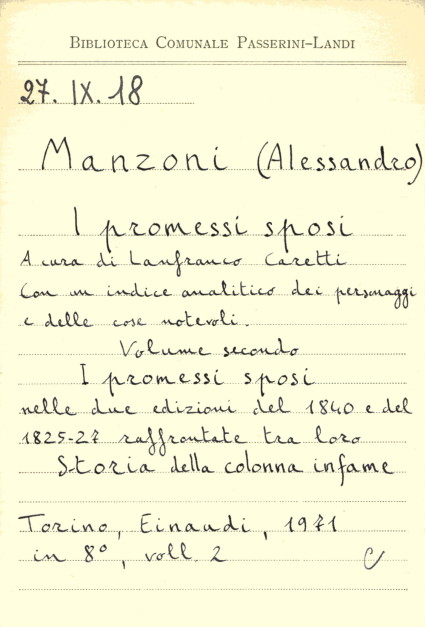 Biblioteca Comunale Passerini-Landi
27. IX. 18
Manzoni (Alessandro)
I promessi sposi
A cura di Lanfranco Caretti
Con un indice analitico dei personaggi
e delle cose notevoli.
Volume secondo
I promessi sposi
nelle due edizioni del 1840 e del
1825-27 raffrontate tra loro
Storia della colonna infame
Torino, Einaudi, 1971
in 8°, voll. 2